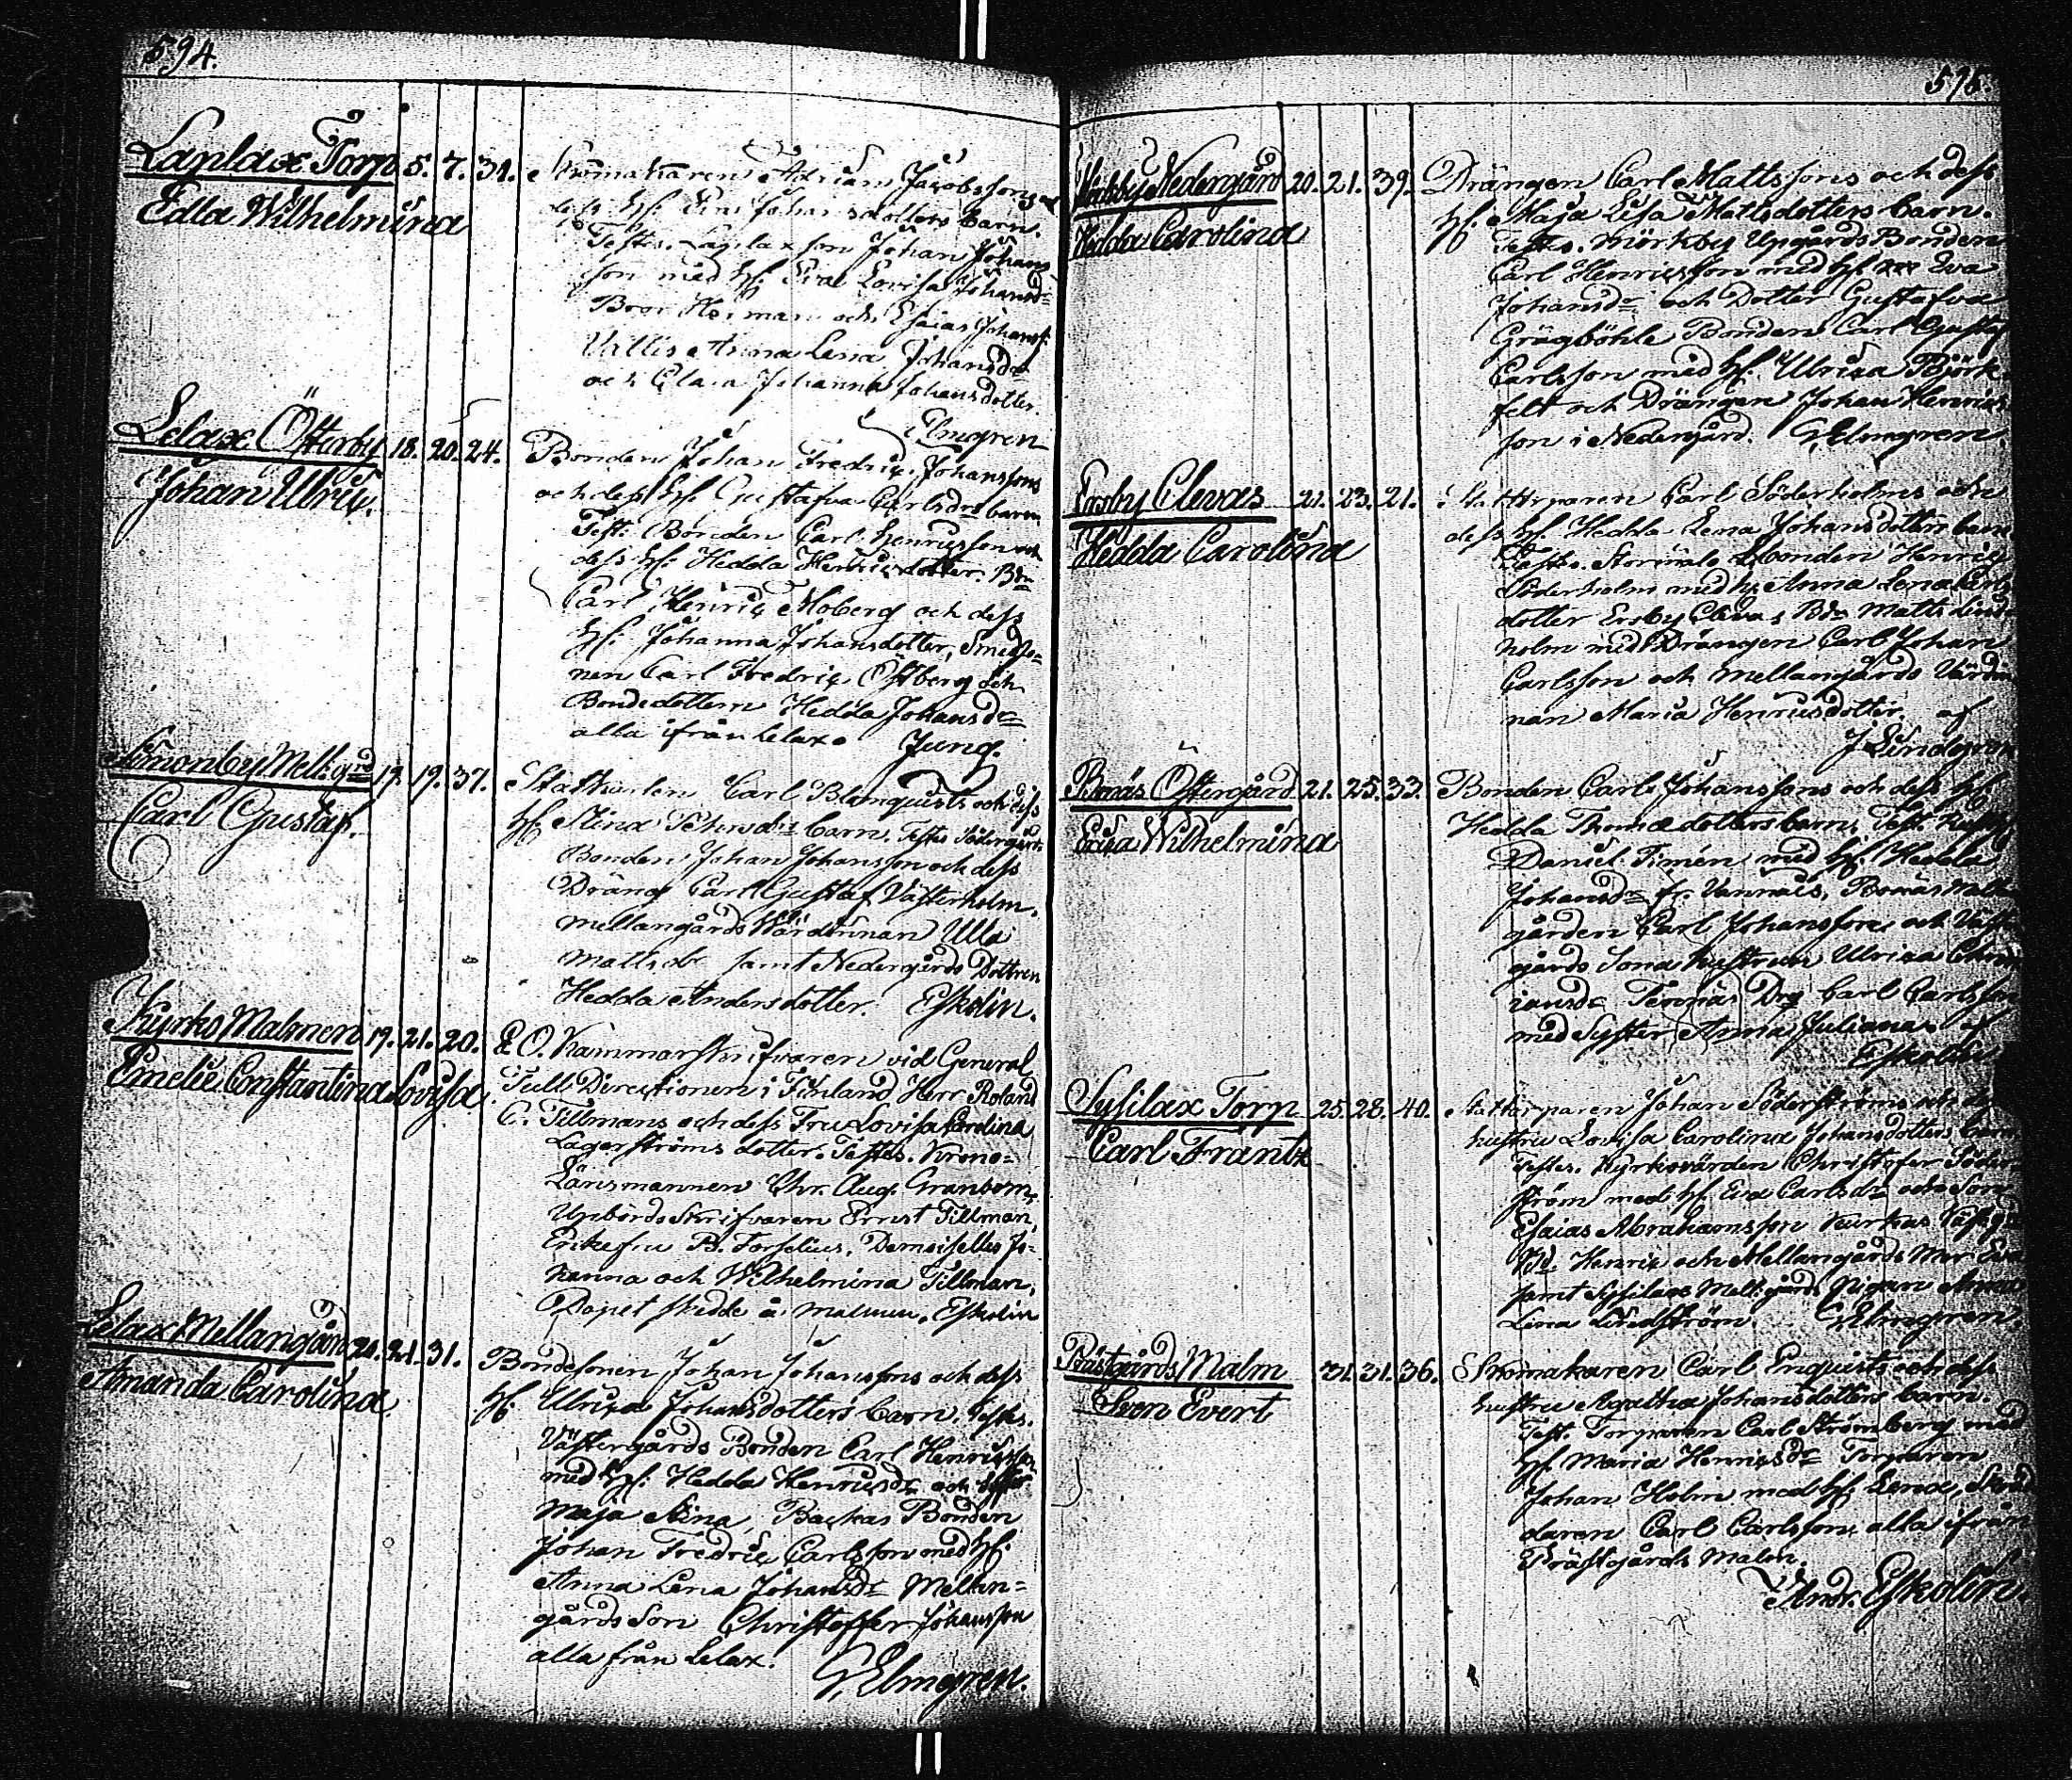 594.
Laplax Torp 5. 7. 31. Skomakaren Adrian Jacobssons och
Edla Wilhelmina
dess H. Johansdotters barn.
Testes. Laplax son Johan Johans
son med H. Eva Lovisa Johansd:r
Bror Herman och Esaias Johanss:
Vallis Anna Lena Johansd:r
och Clara Johanna Johansdotter.
Elmgren
Lelax Österby 18. 20. 24. Bonden Johan Fredric Johanssons
Johan Ulric.
och dess H. Gustafva Carlsd:rs barn
Test: Bonden Carl Henricsson och
dess H: Hedda Henricsdotter. Bdn
Carl Henric Moberg och dess
H: Johanna Johansdotter, Smedso=
nen Carl Fredric Östberg och
Bondedottern Hedda Johansd:r
alla ifrån Lelax. Jung.
Simonby Mell:gård 19. 19. 37. Stathaen Carl Blomquists och dess
Carl Gustaf.
H. Stina barn. Testes Södergårds
Bonden Johan Johansson och dess
Dräng Carl Gustaf Västerholm.
Mellangårds Värdinnan Ulla
Mattsdr samt Nedergårds Dottren
Hedda Andersdotter. Eskolin.
Kyrko Malmen 19. 21. 20. P. O. Kammarskrifvaren vid General
Emelie Constantina Lovisa.
Tull Directionen i Finland Herr Roland
C. Tillmans och dess Fru Lovisa Carolina
Lagerströms dotter. Testes. Krono=
Länsmannen Chr. Aug. Granbom,
Upbörds Skrifvaren Ernst Tillman,
Enkefru B. Forselius, Demoiselles Jo=
hanna och Wilhelmina Tillman,
Dopet skedde å Malmen. Eskolin
Lelax Mellangård 20. 21. 31. Bondesonen Johan Johanssons och dess
Amanda Carolina.
H. Ulrica Johansdotters barn. Testes.
Västergårds Bonden Carl Henricsson
med H: Hedda Henricsdr och
Maja Stina, Backas Bonden
Johan Fredric Carlsson med H:
Anna Lena Johansdr Mellan=
gårds Son Christoffer Johansson
alla från Lelax. G. Elmgren.
595.
Nedergård 20. 21. 39. Drängen Carl Mattssons och dess
Hedda Carolina
H. Maja Lisa Mattsdotters barn.
Testes. Mörkby Upgårds Bonden
Carl Henricsson med H. Eva
Johansdr och Dotter Gustafva
Grägböhle Bonden Carl Gustaf
Carlsson med H. Ulrica Björk
felt och Drängen Johan Henrics
son i Nedergård. G. Elmgren.
Ersby Clevas 21. 23. 21. Stattorparen Carl Söderholms och
Hedda Carolina
dess H. Hedda Lena Johansdotters barn
Testes. Bonden Henric
Söderholm med H. Anna Lena Carls
dotter Ersby Clevas Bdn Matts Lind
holm med Drängen Carl Johan
Carlsson och Mellangårds Värdin
nan Maria Henricsdotter. af
J Lindgren
Bonäs Östergård 21. 25. 33. Bonden Carl Johanssons och dess H.
Erica Wilhelmina
Hedda Thomædotters barn, Test.
Daniel Timén med H. Hedda
Johansdr fr. Vannais, Bonäs
gården Carl Johansson och Väst
gårds Sona hustrun Ulrica Christ
iansdr Tennäs Drg Carl Carlsson
med Syster Anna Juliana. af
Eskolin
Sysilax Torp 25. 28. 40. Stattorparen Johan Söderströms och dess
Carl Frantz
hustru Lovisa Carolina Johansdotters barn
Testes. Kyrkovärden Christofer Söder
ström med H. Eva Carlsdr och Son
Esaias Abrahamsson Kurkas
Bd. Henric och Mellangårds
samt Sysilax Mell:gårds Pigan Anna
Lena Lindström. G Elmgren.
Prästgårds Malm 31. 31. 36. Skomakaren Carl Enquists och dess
Sven Evert
hustru Agatha Johansdotters barn.
Test. Torparen Carl Strömberg med
H. Maria Henricsdr Torparen
Johan Holm med H: Lena,
daren Carl Carlsson, alla ifrån
Prästgårds Malm.
Andr. Eskolin.